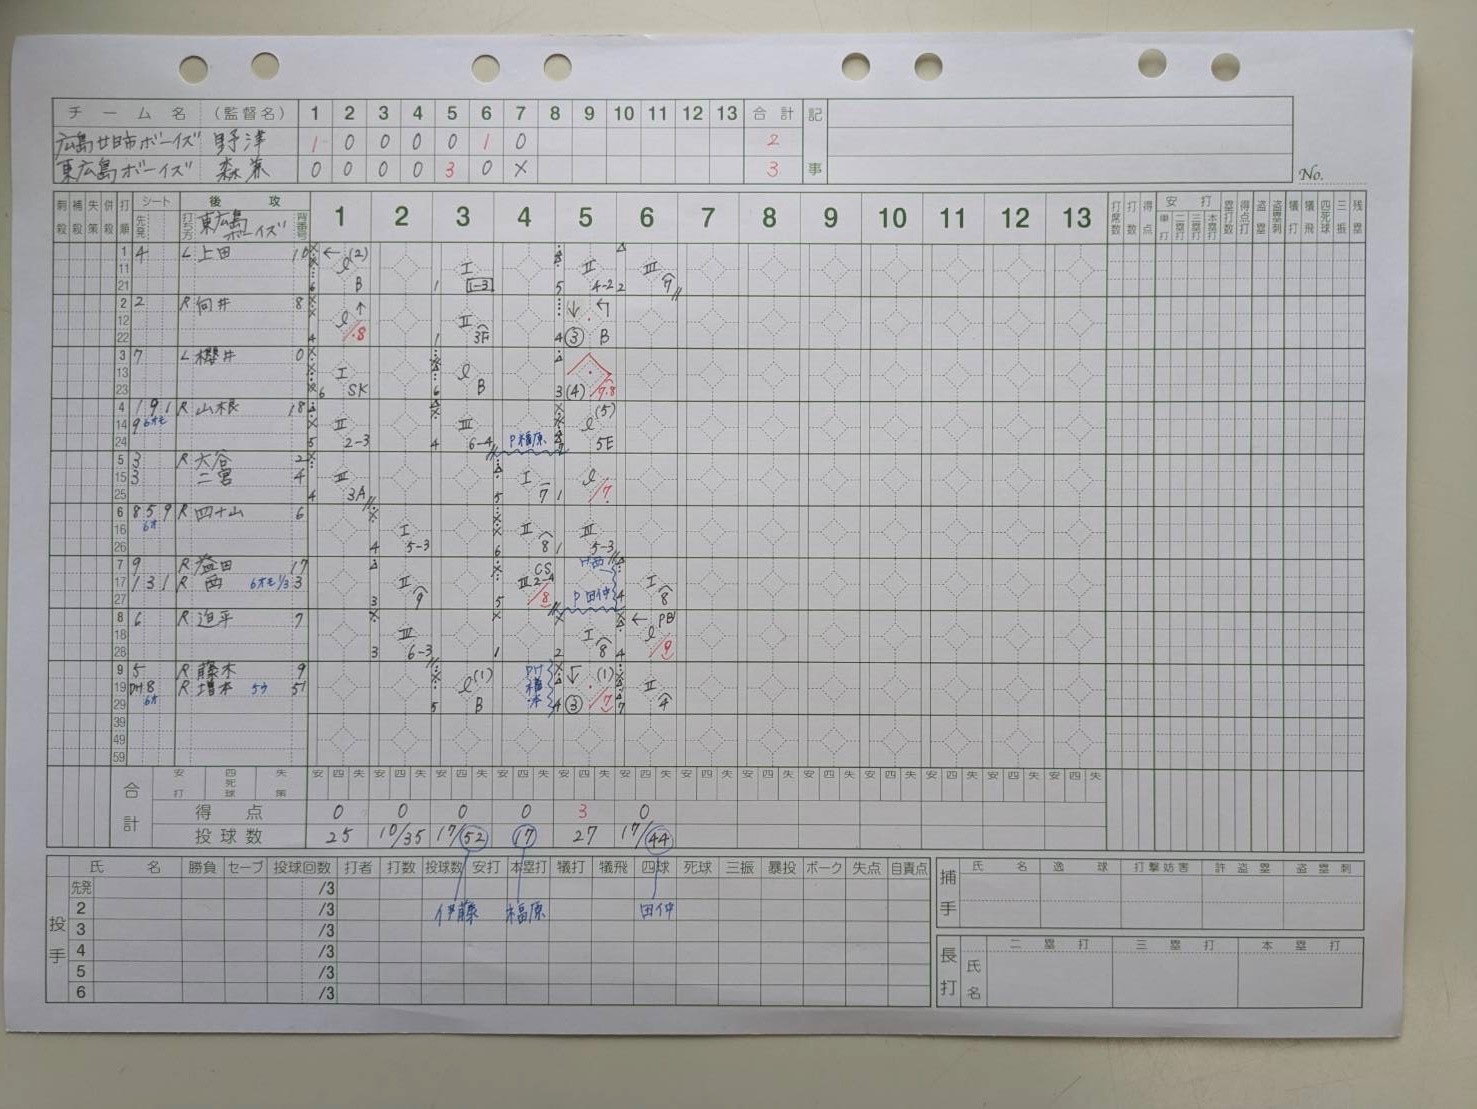 チーム名 (監督名) 1 2 3 4 5 6 7 8 9 10 11 12 13 合計 記事
広島廿日市ボーイズ 野津 1 0 0 0 0 1 0 2
東広島ボーイズ 森兼 0 0 0 0 3 0 X 3
No.
刺殺 補殺 失策 併殺 打順 シート 先発 後攻 打ち方 東広島ボーイズ 背番号 1 2 3 4 5 6 7 8 9 10 11 12 13 打席数 打数 得点 安打 単打 二塁打 三塁打 本塁打 塁打数 得点打 盗塁 盗塁刺 犠打 犠飛 四死球 三振 残塁
1 4 L 上田 10 ←(2) B I 1-3 II 4-2 III 7
11
21
2 2 R 向井 8 8 II 3F ③ B
12
22
3 7 L 櫻井 0 I SK B (4) 7.8
13
23
4 1 9 1 R 山根 18 II 2-3 III 6-4 P 福原 (5) 5E
14 9
24
5 3 R 大谷 2 III 3A I 7 7
15 3 二宮 4
25
6 8 5 9 R 四十山 6 I 5-3 II 8 III 5-3
16
26
7 9 R 益田 17 II 9 CS III 2-4 8 H西 P 田仲 I 8
17 1 3 1 R 西 3
27
8 6 R 迫平 7 III 6-3 I 8 ← PB 9
18
28
9 5 R 藤木 9 (1) B ③ (1) 7 II 4
19 DH 8 R 増本 51
29
39
49
59
合計 安打 四死球 失策 安 四 失 安 四 失 安 四 失 安 四 失 安 四 失 安 四 失 安 四 失 安 四 失 安 四 失 安 四 失 安 四 失 安 四 失 安 四 失
得点 0 0 0 0 3 0
投球数 25 10/35 17/52 17 27 17/44
投手 氏名 勝負 セーブ 投球回数 打者 打数 投球数 安打 本塁打 犠打 犠飛 四球 死球 三振 暴投 ボーク 失点 自責点
先発 /3
2 /3 伊藤 福原 田仲
3 /3
4 /3
5 /3
6 /3
捕手 氏名 逸球 打撃妨害 許盗塁 盗塁刺
長打 氏名 二塁打 三塁打 本塁打